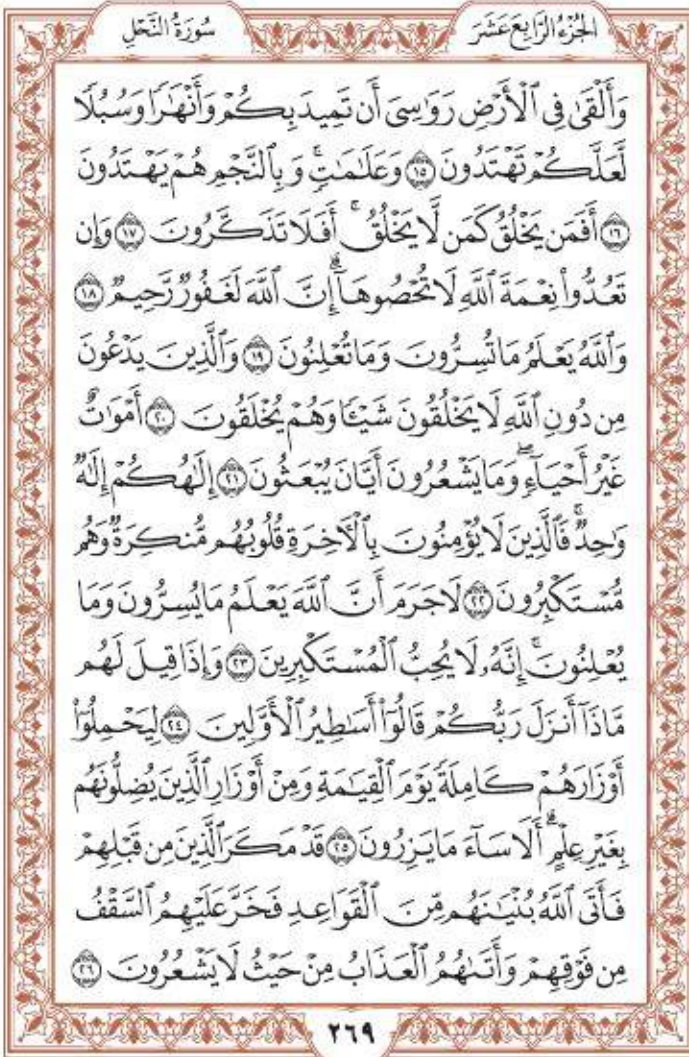 الجُزْءُ الرَّابِعَ عَشَرَ
سُورَةُ النَّحْلِ
وَأَلْقَىٰ فِي ٱلْأَرْضِ رَوَٰسِيَ أَن تَمِيدَ بِكُمْ وَأَنْهَٰرًا وَسُبُلًا
لَّعَلَّكُمْ تَهْتَدُونَ ١٥ وَعَلَٰمَٰتٍۚ وَبِٱلنَّجْمِ هُمْ يَهْتَدُونَ
١٦ أَفَمَن يَخْلُقُ كَمَن لَّا يَخْلُقُۚ أَفَلَا تَذَكَّرُونَ ١٧ وَإِن
تَعُدُّوا۟ نِعْمَةَ ٱللَّهِ لَا تُحْصُوهَآۗ إِنَّ ٱللَّهَ لَغَفُورٌ رَّحِيمٌ ١٨
وَٱللَّهُ يَعْلَمُ مَا تُسِرُّونَ وَمَا تُعْلِنُونَ ١٩ وَٱلَّذِينَ يَدْعُونَ
مِن دُونِ ٱللَّهِ لَا يَخْلُقُونَ شَيْـًٔا وَهُمْ يُخْلَقُونَ ٢٠ أَمْوَٰتٌ
غَيْرُ أَحْيَآءٍۖ وَمَا يَشْعُرُونَ أَيَّانَ يُبْعَثُونَ ٢١ إِلَٰهُكُمْ إِلَٰهٌ
وَٰحِدٌۚ فَٱلَّذِينَ لَا يُؤْمِنُونَ بِٱلْأَخِرَةِ قُلُوبُهُم مُّنكِرَةٌ وَهُم
مُّسْتَكْبِرُونَ ٢٢ لَا جَرَمَ أَنَّ ٱللَّهَ يَعْلَمُ مَا يُسِرُّونَ وَمَا
يُعْلِنُونَۚ إِنَّهُۥ لَا يُحِبُّ ٱلْمُسْتَكْبِرِينَ ٢٣ وَإِذَا قِيلَ لَهُم
مَّاذَآ أَنزَلَ رَبُّكُمْ قَالُوٓا۟ أَسَٰطِيرُ ٱلْأَوَّلِينَ ٢٤ لِيَحْمِلُوٓا۟
أَوْزَارَهُمْ كَامِلَةً يَوْمَ ٱلْقِيَٰمَةِ وَمِنْ أَوْزَارِ ٱلَّذِينَ يُضِلُّونَهُم
بِغَيْرِ عِلْمٍۗ أَلَا سَآءَ مَا يَزِرُونَ ٢٥ قَدْ مَكَرَ ٱلَّذِينَ مِن قَبْلِهِمْ
فَأَتَى ٱللَّهُ بُنْيَٰنَهُم مِّنَ ٱلْقَوَاعِدِ فَخَرَّ عَلَيْهِمُ ٱلسَّقْفُ
مِن فَوْقِهِمْ وَأَتَىٰهُمُ ٱلْعَذَابُ مِنْ حَيْثُ لَا يَشْعُرُونَ ٢٦
٢٦٩